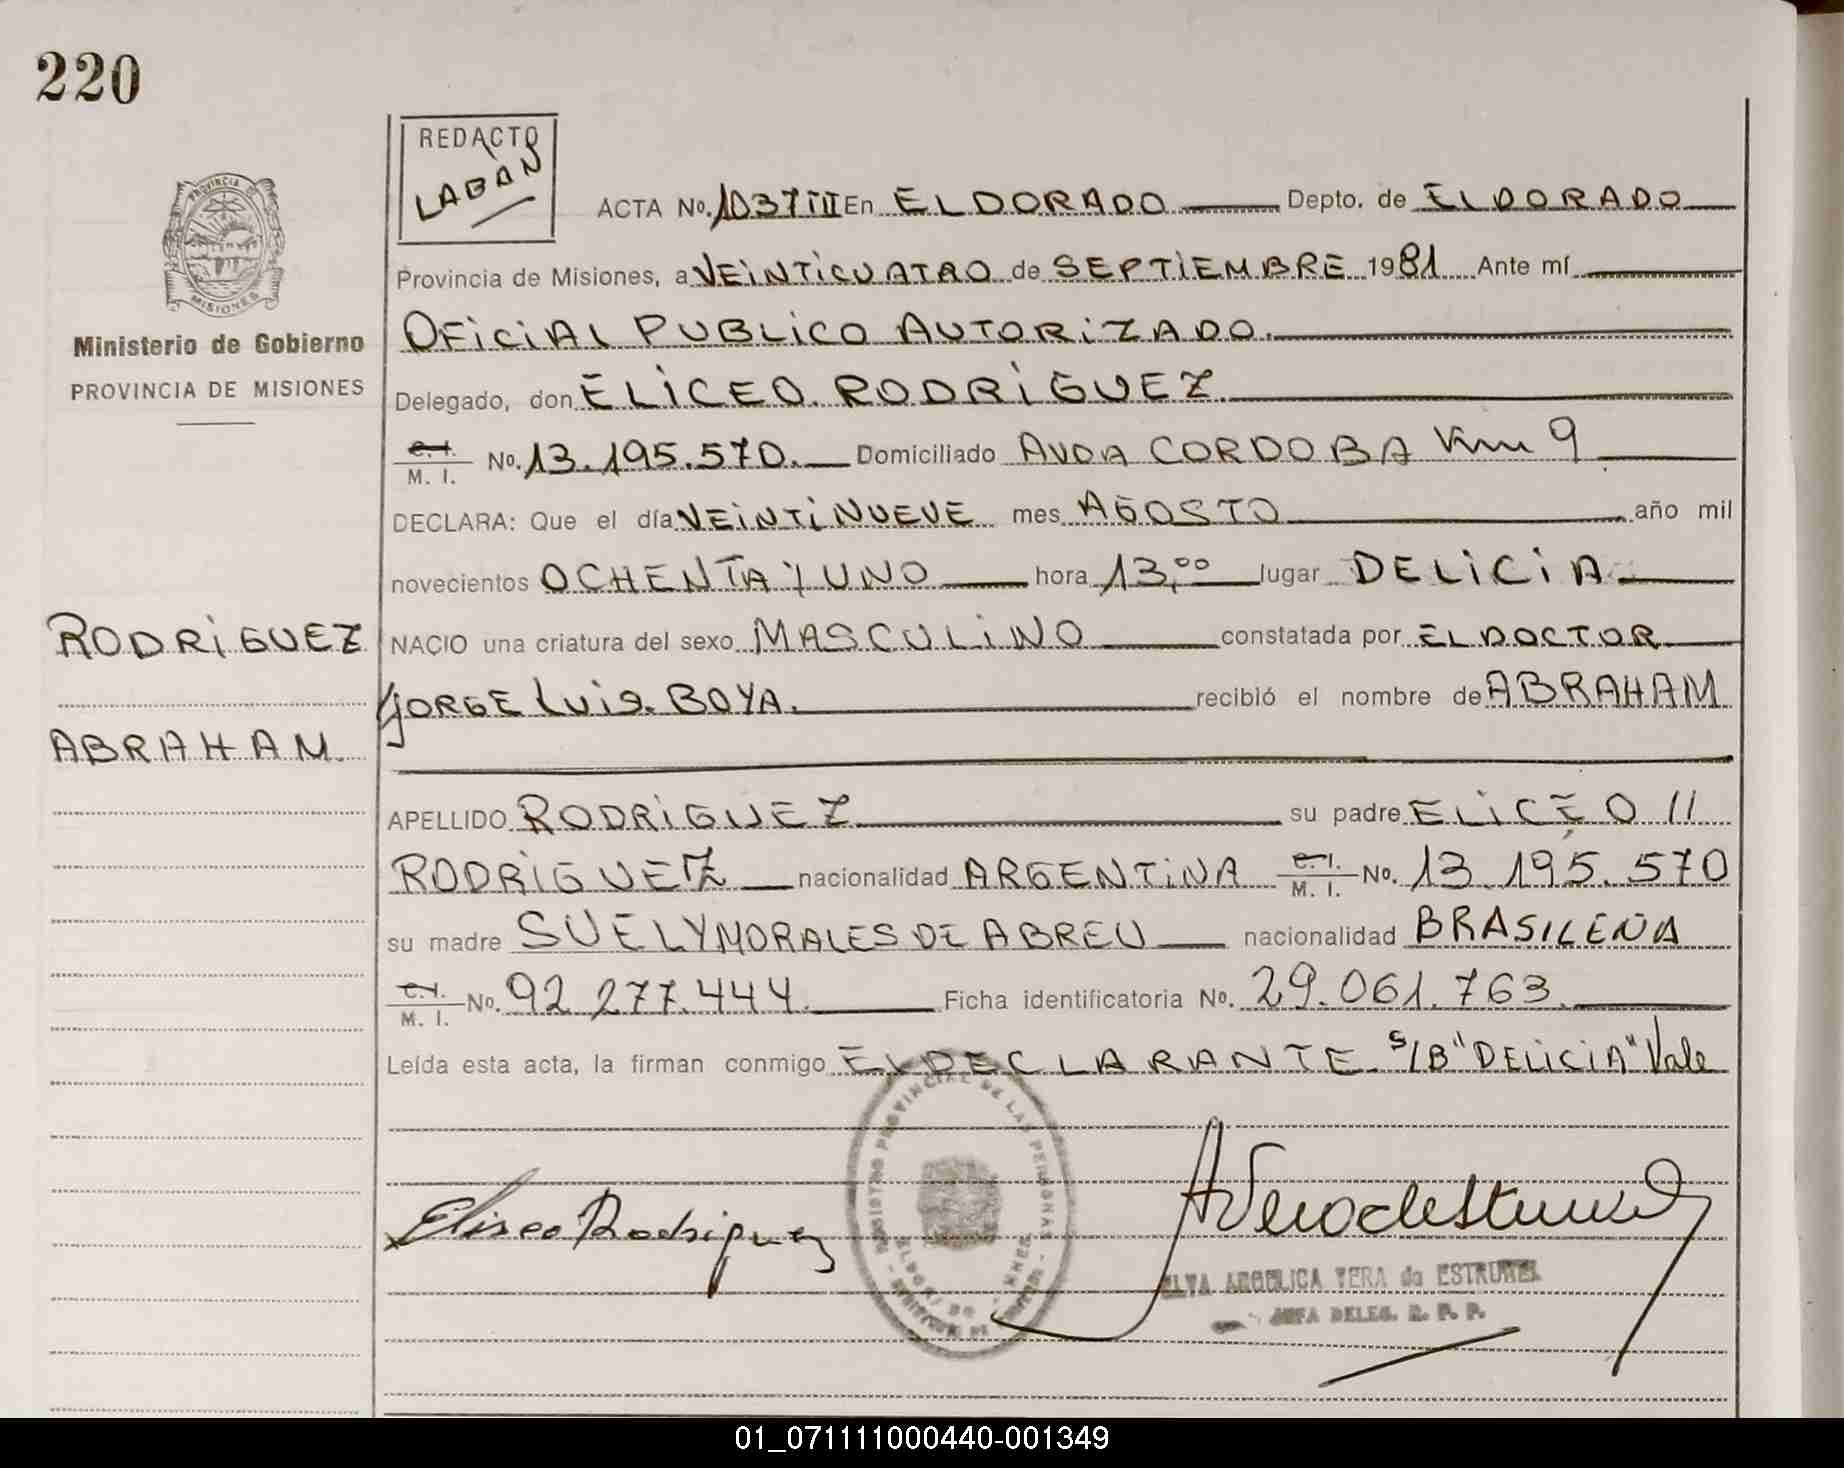 220
REDACTO
LABAN
ACTA No. 1037 III En ELDORADO Depto. de ELDORADO
PROVINCIA DE
MISIONES
Provincia de Misiones, a VEINTICUATRO de SEPTIEMBRE 1981 Ante mí
Ministerio de Gobierno
PROVINCIA DE MISIONES
OFICIAL PUBLICO AUTORIZADO.
Delegado, don ELICEO RODRIGUEZ
C. I.
M. I. No. 13.195.570. Domiciliado AVDA CORDOBA Km 9
DECLARA: Que el día VEINTINUEVE mes AGOSTO año mil
novecientos OCHENTA Y UNO hora 13,00 lugar DELICIA
RODRIGUEZ
ABRAHAM.
NACIO una criatura del sexo MASCULINO constatada por EL DOCTOR
JORGE LUIS BOYA. recibió el nombre de ABRAHAM
APELLIDO RODRIGUEZ su padre ELICEO //
RODRIGUEZ nacionalidad ARGENTINA C. I. M. I. No. 13.195.570
su madre SUELY MORALES DE ABREU nacionalidad BRASILEÑA
C. I. M. I. No. 92.277.444. Ficha identificatoria No. 29.061.763.
Leída esta acta, la firman conmigo EL DECLARANTE. S/B "DELICIA" Vale
REGISTRO PROVINCIAL DE LAS PERSONAS
Eliseo Rodriguez
ELVA ANGELICA VERA de ESTRUBEL
JEFA DELEG. R. P. P.
01_071111000440-001349